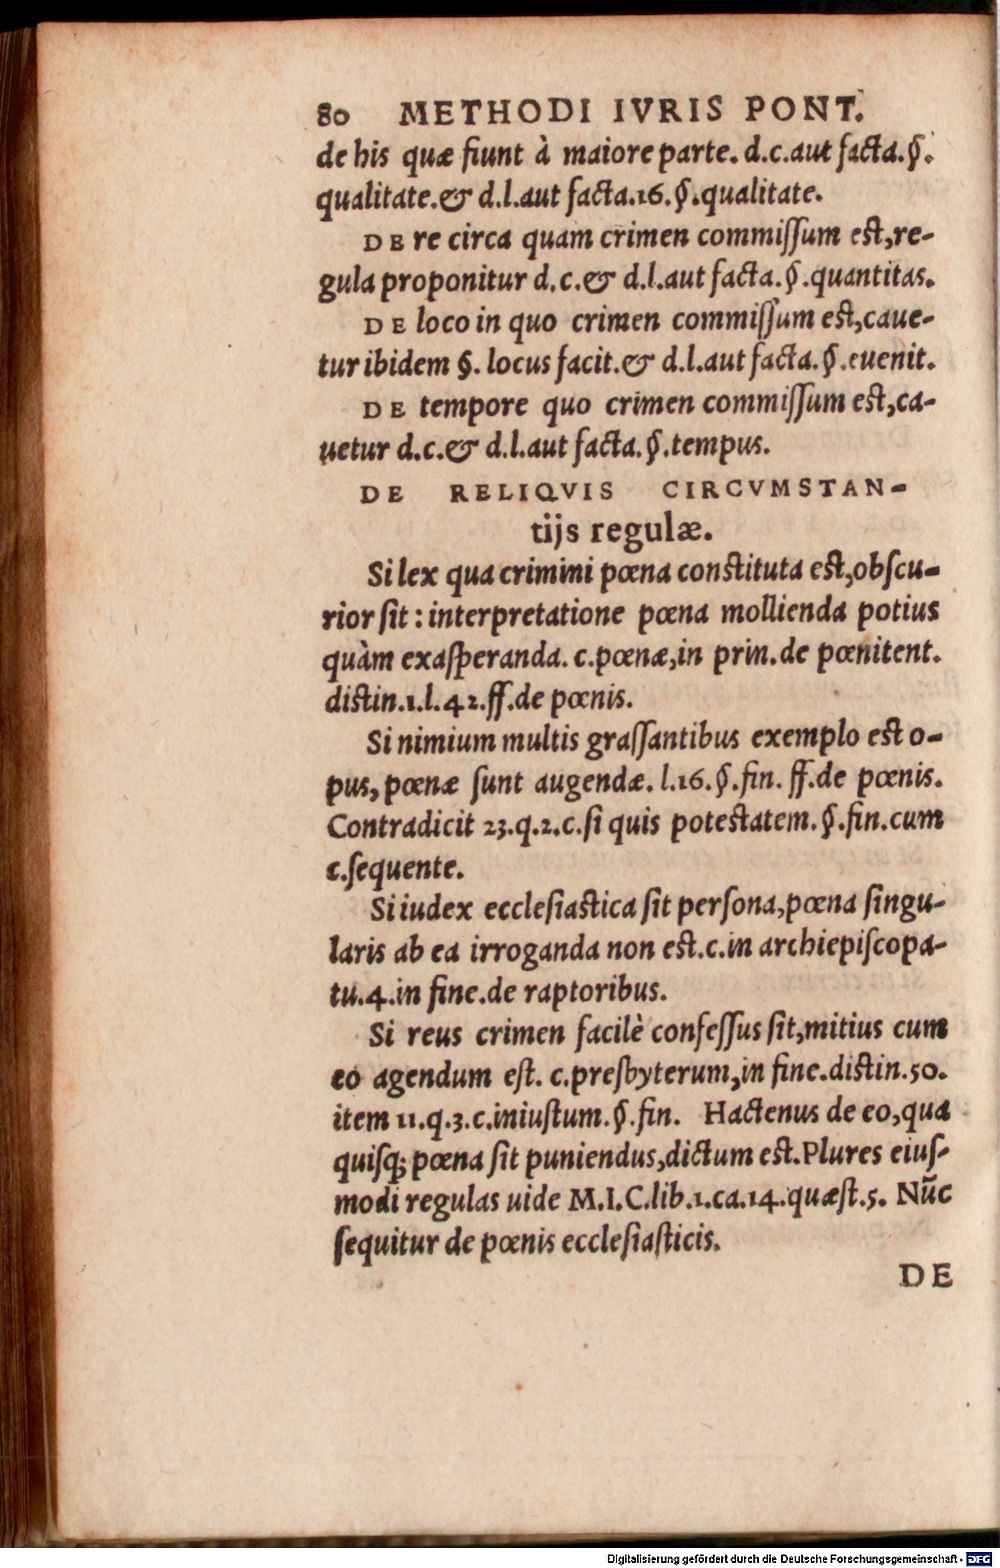 80 METHODI IVRIS PONT.
de his quæ fiunt à maiore parte. d.c.aut facta.§.
qualitate.& d.l.aut facta.16.§.qualitate.
DE re circa quam crimen commiſſum eſt,re-
gula proponitur d.c.& d.l.aut facta.§.quantitas.
DE loco in quo crimen commiſſum eſt,caue-
tur ibidem §. locus facit.& d.l.aut facta.§.euenit.
DE tempore quo crimen commiſſum eſt,ca-
uetur d.c.& d.l.aut facta.§.tempus.
DE RELIQVIS CIRCVMSTAN-
tijs regulæ.
Si lex qua crimini pœna conſtituta eſt,obſcu-
rior ſit : interpretatione pœna mollienda potius
quàm exaſperanda. c.pœnæ,in prin.de pœnitent.
diſtin.1.l.42.ff.de pœnis.
Si nimium multis graſſantibus exemplo eſt o-
pus, pœnæ ſunt augendæ. l.16.§.fin. ff.de pœnis.
Contradicit 23.q.2.c.ſi quis poteſtatem.§.fin.cum
c.ſequente.
Si iudex eccleſiaſtica ſit perſona,pœna ſingu-
laris ab ea irroganda non eſt.c.in archiepiſcopa-
tu.4.in fine.de raptoribus.
Si reus crimen facilè confeſſus ſit,mitius cum
eo agendum eſt. c.preſbyterum,in fine.diſtin.50.
item 11.q.3.c.iniuſtum.§.fin. Hactenus de eo,qua
quiſq; pœna ſit puniendus,dictum eſt.Plures eiuſ-
modi regulas uide M.I.C.lib.1.ca.14.quæſt.5. Nūc
ſequitur de pœnis eccleſiaſticis.
DE
Digitalisierung gefördert durch die Deutsche Forschungsgemeinschaft - DFG